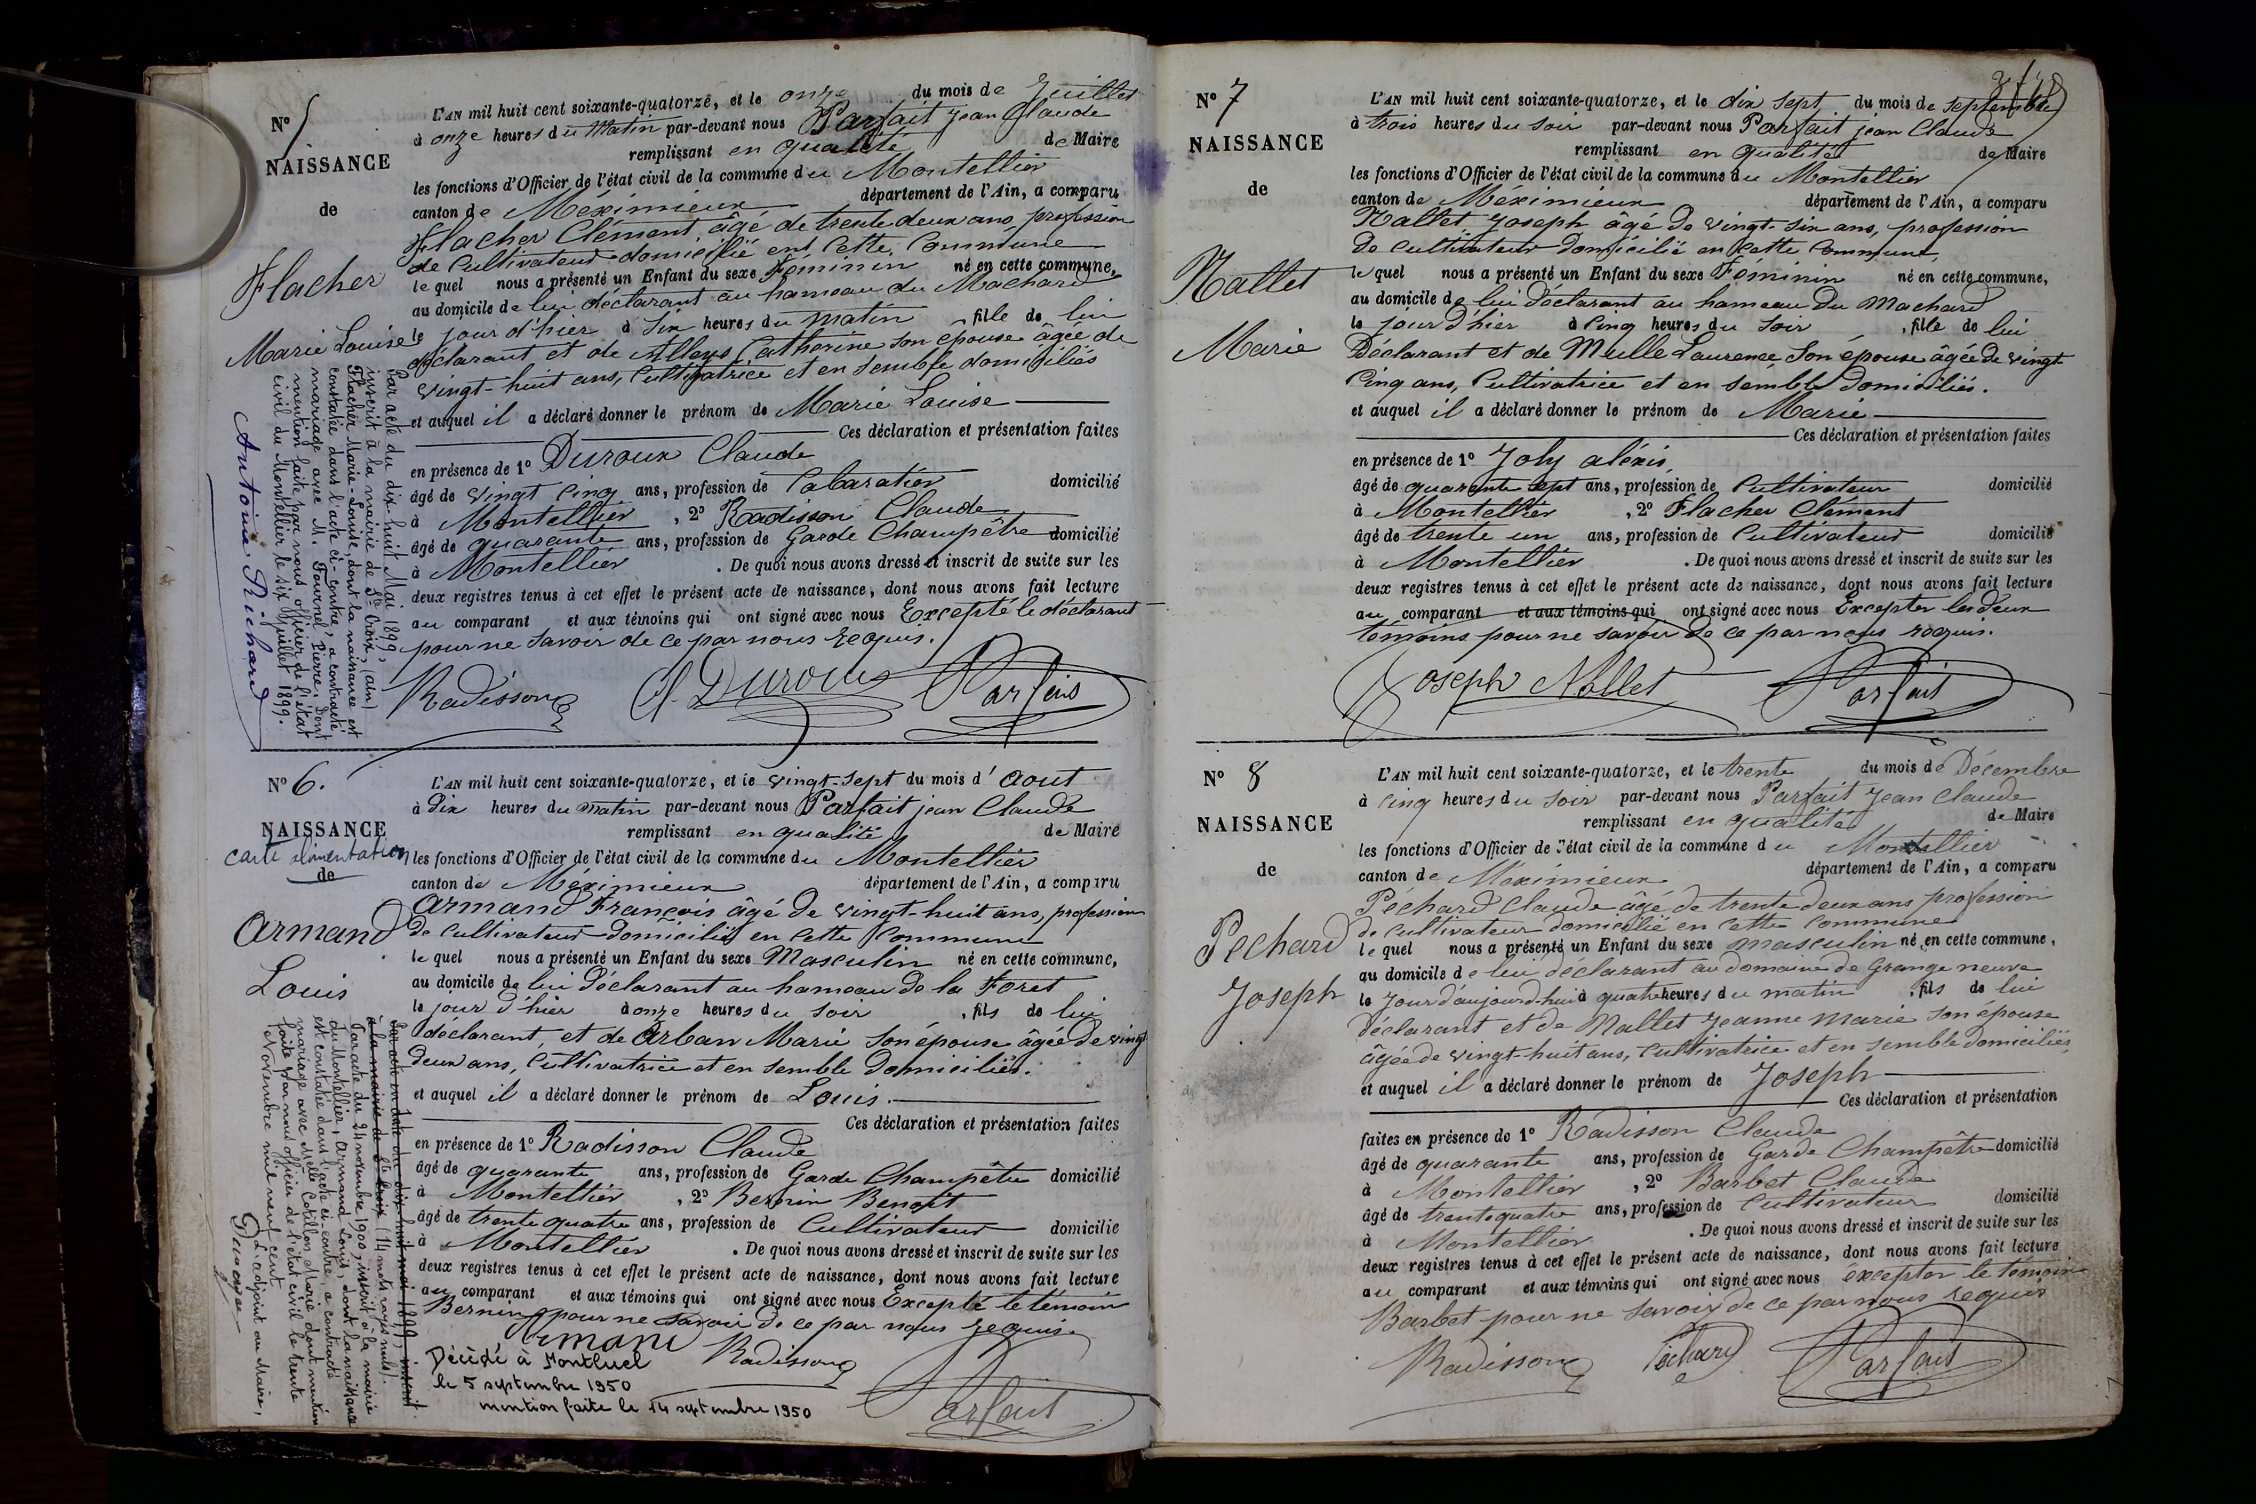 N° 5
NAISSANCE
de
Flacher
Marie Louise
L'AN mil huit cent soixante-quatorze, et le onze du mois de Juillet
à onze heures du matin par-devant nous Parfait Jean Claude
remplissant en qualité de Maire
les fonctions d'Officier de l'état civil de la commune du Montellier
canton de Méximieux département de l'Ain, a comparu
Flacher Clément âgé de trente deux ans, profession
de Cultivateur domicilié en Cette Commune
le quel nous a présenté un Enfant du sexe Féminin né en cette commune,
au domicile de lui déclarant au hameau du Machard
le jour d'hier à six heures du matin fille de lui
déclarant et de Catherine son épouse âgée de
vingt-huit ans, Cultivatrice et en semble domiciliés
et auquel il a déclaré donner le prénom de Marie Louise
Ces déclaration et présentation faites
en présence de 1° Duroux Claude
âgé de vingt cinq ans, profession de Cabaratier domicilié
à Montellier, 2° Radisson Claude
âgé de quarante ans, profession de Garde Champêtre domicilié
à Montellier. De quoi nous avons dressé et inscrit de suite sur les
deux registres tenus à cet effet le présent acte de naissance, dont nous avons fait lecture
au comparant et aux témoins qui ont signé avec nous Excepté le déclarant
pour ne savoir de ce par nous requis.
Radisson Cl. Duroux Parfait
Par acte du dix-huit Mai 1899,
inscrit à la mairie de Ste Croix, (ain)
Flacher Marie-Louise, dont la naissance est
constatée dans l'acte ci-contre, a contracté
mariage avec M. Fournel, Pierre. Dont
mention faite par nous officier de l'état
civil du Montellier le six Juillet 1899.
Antoine Richard
N° 6.
NAISSANCE
carte alimentation
de
Armand
Louis
L'AN mil huit cent soixante-quatorze, et le vingt-sept du mois d'aout
à dix heures du matin par-devant nous Parfait jean Claude
remplissant en qualité de Maire
les fonctions d'Officier de l'état civil de la commune du Montellier
canton de Méximieux département de l'Ain, a comparu
Armand François âgé de vingt-huit ans, profession
de cultivateur domicilié en cette Commune
le quel nous a présenté un Enfant du sexe Masculin né en cette commune,
au domicile de lui déclarant au hameau de la Foret
le jour d'hier à onze heures du soir, fils de lui
déclarant, et de Arban Marie son épouse âgée de vingt
deux ans, Cultivatrice et en semble Domiciliés.
et auquel il a déclaré donner le prénom de Louis.
Ces déclaration et présentation faites
en présence de 1° Radisson Claude
âgé de quarante ans, profession de Garde Champêtre domicilié
à Montellier, 2° Bernin Benoît
âgé de trente quatre ans, profession de Cultivateur domicilié
à Montellier. De quoi nous avons dressé et inscrit de suite sur les
deux registres tenus à cet effet le présent acte de naissance, dont nous avons fait lecture
au comparant et aux témoins qui ont signé avec nous Excepté le témoin
Bernin pour ne savoir de ce par nous requis.
Armand Radisson Parfait
Décédé à Montluel
le 5 septembre 1950
mention faite le 14 septembre 1950
Par acte en date du dix-huit mai 1899, inscrit
à la mairie de Ste Croix (14 mots rayés nuls).
Par acte du 24 novembre 1900, inscrit à la mairie
du Montellier, Armand Louis, dont la naissance
est constatée dans l'acte ci-contre, a contracté
mariage avec Melle Cotillon Marie dont mention
faite par nous officier de l'état civil le trente
Novembre mil neuf cent
L'adjoint au Maire,
N° 7
NAISSANCE
de
Nallet
Marie
L'AN mil huit cent soixante-quatorze, et le dix sept du mois de septembre
à trois heures du soir par-devant nous Parfait jean Claude
remplissant en qualité de Maire
les fonctions d'Officier de l'état civil de la commune du Montellier
canton de Méximieux département de l'Ain, a comparu
Nallet Joseph âgé de vingt-six ans, profession
de cultivateur domicilié en cette commune
le quel nous a présenté un Enfant du sexe Féminin né en cette commune,
au domicile de lui déclarant au hameau du Machard
le jour d'hier à cinq heures du soir, fille de lui
Déclarant et de Mulle Laurence Son épouse âgée de vingt
cinq ans, Cultivatrice et en semble domiciliés.
et auquel il a déclaré donner le prénom de Marie
Ces déclaration et présentation faites
en présence de 1° Joly aléxis
âgé de quarante sept ans, profession de Cultivateur domicilié
à Montellier, 2° Flacher Clément
âgé de trente un ans, profession de Cultivateur domicilié
à Montellier. De quoi nous avons dressé et inscrit de suite sur les
deux registres tenus à cet effet le présent acte de naissance, dont nous avons fait lecture
au comparant et aux témoins qui ont signé avec nous Excepter les deux
témoins pour ne savoir de ce par nous requis.
Joseph Nallet Parfait
N° 8
NAISSANCE
de
Pechard
Joseph
L'AN mil huit cent soixante-quatorze, et le trente du mois de Décembre
à cinq heures du soir par-devant nous Parfait Jean Claude
remplissant en qualité de Maire
les fonctions d'Officier de l'état civil de la commune du Montellier
canton de Méximieux département de l'Ain, a comparu
Péchard Claude âgé de trente deux ans profession
de cultivateur domicilié en cette commune
le quel nous a présenté un Enfant du sexe masculin né en cette commune,
au domicile de lui déclarant au domaine de Grange neuve
le Jour d'aujourd-hui à quatre heures du matin, fils de lui
déclarant et de Nallet Jeanne Marie son épouse
âgée de vingt-huit ans, cultivatrice et en semble domiciliés,
et auquel il a déclaré donner le prénom de Joseph
Ces déclaration et présentation
faites en présence de 1° Radisson Claude
âgé de quarante ans, profession de Garde Champêtre domicilié
à Montellier, 2° Barbet Claude
âgé de trente quatre ans, profession de Cultivateur domicilié
à Montellier. De quoi nous avons dressé et inscrit de suite sur les
deux registres tenus à cet effet le présent acte de naissance, dont nous avons fait lecture
au comparant et aux témoins qui ont signé avec nous excepter le témoin
Barbet pour ne savoir de ce par nous requis
Radisson Péchard Parfait